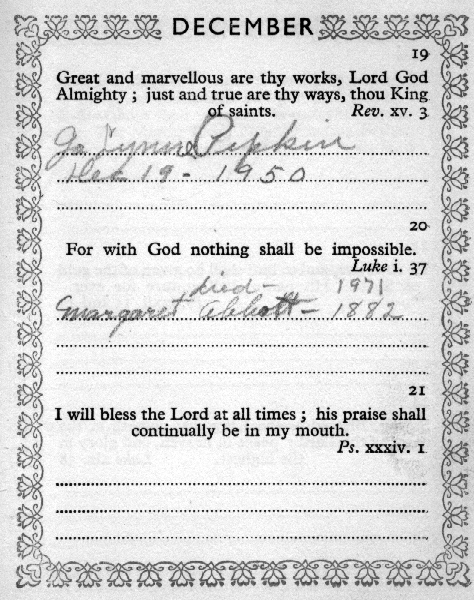 DECEMBER
19
Great and marvellous are thy works, Lord God
Almighty ; just and true are thy ways, thou King
of saints. Rev. xv. 3
Jo Lynne Pipkin
Dec 19 - 1950
20
For with God nothing shall be impossible.
Luke i. 37
died - 1971
Margaret Abbott - 1882
21
I will bless the Lord at all times ; his praise shall
continually be in my mouth.
Ps. xxxiv. 1